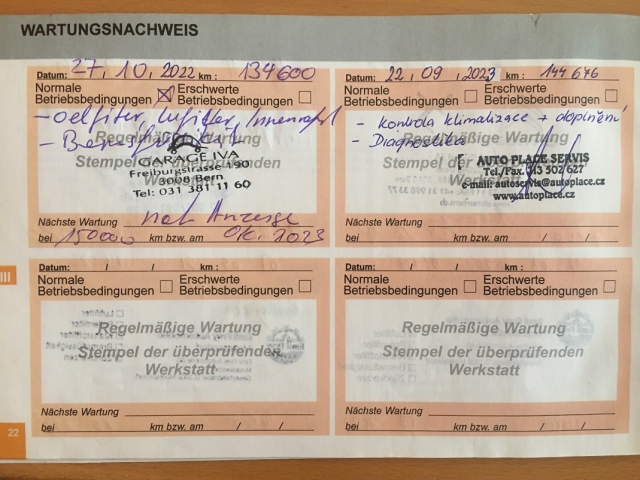 WARTUNGSNACHWEIS
Datum: 27, 10, 2022 km: 134600
Normale Betriebsbedingungen ☒ Erschwerte Betriebsbedingungen ☐
- Oelfilter, Luftfilter, Innenraumf
Regelmäßige Wartung
Stempel der überprüfenden
GARAGE IVA
Freiburgstrasse 190
3008 Bern
Tel: 031 381 11 60
Nächste Wartung Nach Anzeige
bei 150000 km bzw. am Okt. 2023
Datum: 22, 09, 2023 km: 144 646
Normale Betriebsbedingungen ☐ Erschwerte Betriebsbedingungen ☐
- kontrola klimatizace + doplnění
- Diagnostica
Regelmäßige Wartung
Stempel der
AUTO PLACE SERVIS
Tel./Fax. 313 502 627
e-mail: autoservis@autoplace.cz
www.autoplace.cz
Nächste Wartung
bei km bzw. am / /
III
Datum: / / km:
Normale Betriebsbedingungen ☐ Erschwerte Betriebsbedingungen ☐
Regelmäßige Wartung
Stempel der überprüfenden
Werkstatt
Nächste Wartung
bei km bzw. am / /
Datum: / / km:
Normale Betriebsbedingungen ☐ Erschwerte Betriebsbedingungen ☐
Regelmäßige Wartung
Stempel der überprüfenden
Werkstatt
Nächste Wartung
bei km bzw. am / /
22